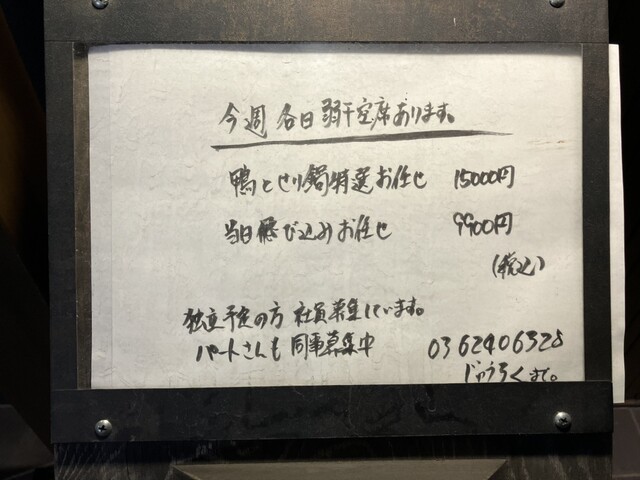 今週 各日 弱干空席あります。
鴨とせり鍋特選お任せ 15000円
当日飛び込みお任せ 9900円
(税込)
独立予定の方 社員募集しています。
パートさんも 同事募集中 0362406328
じゅうろくまで。